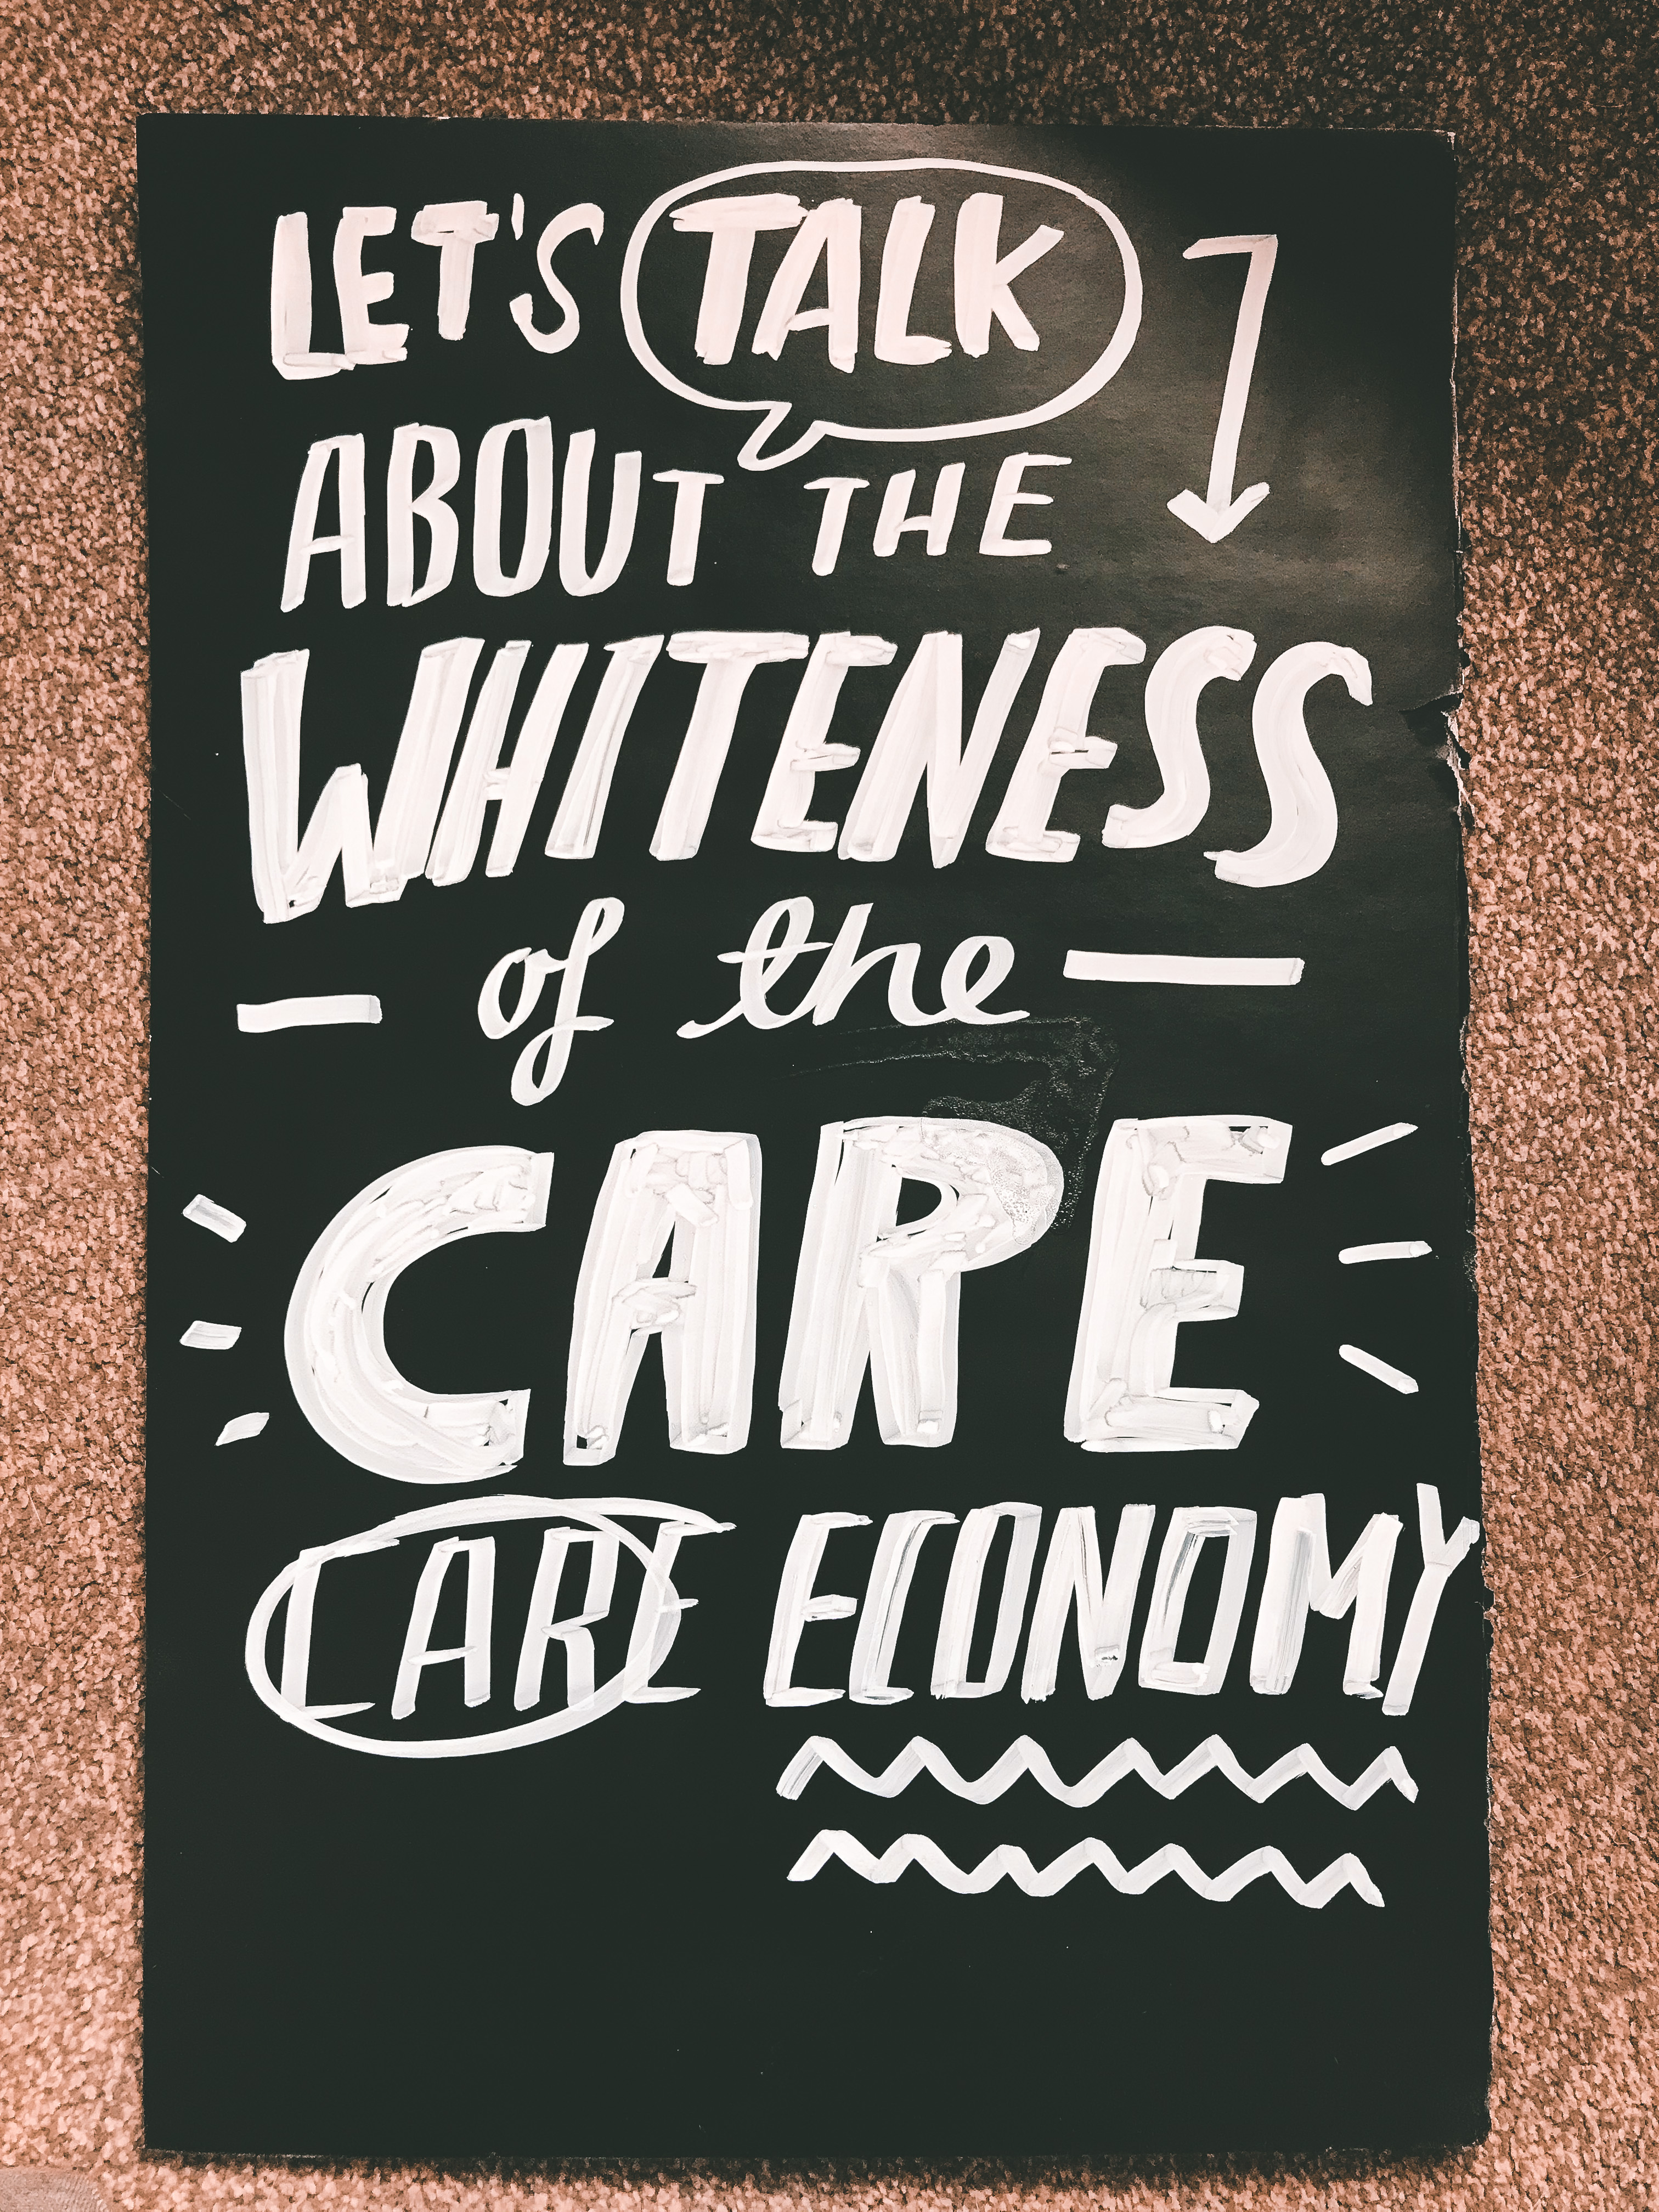 LET'S TALK
ABOUT THE
WHITENESS
of the
CARE
CARE ECONOMY